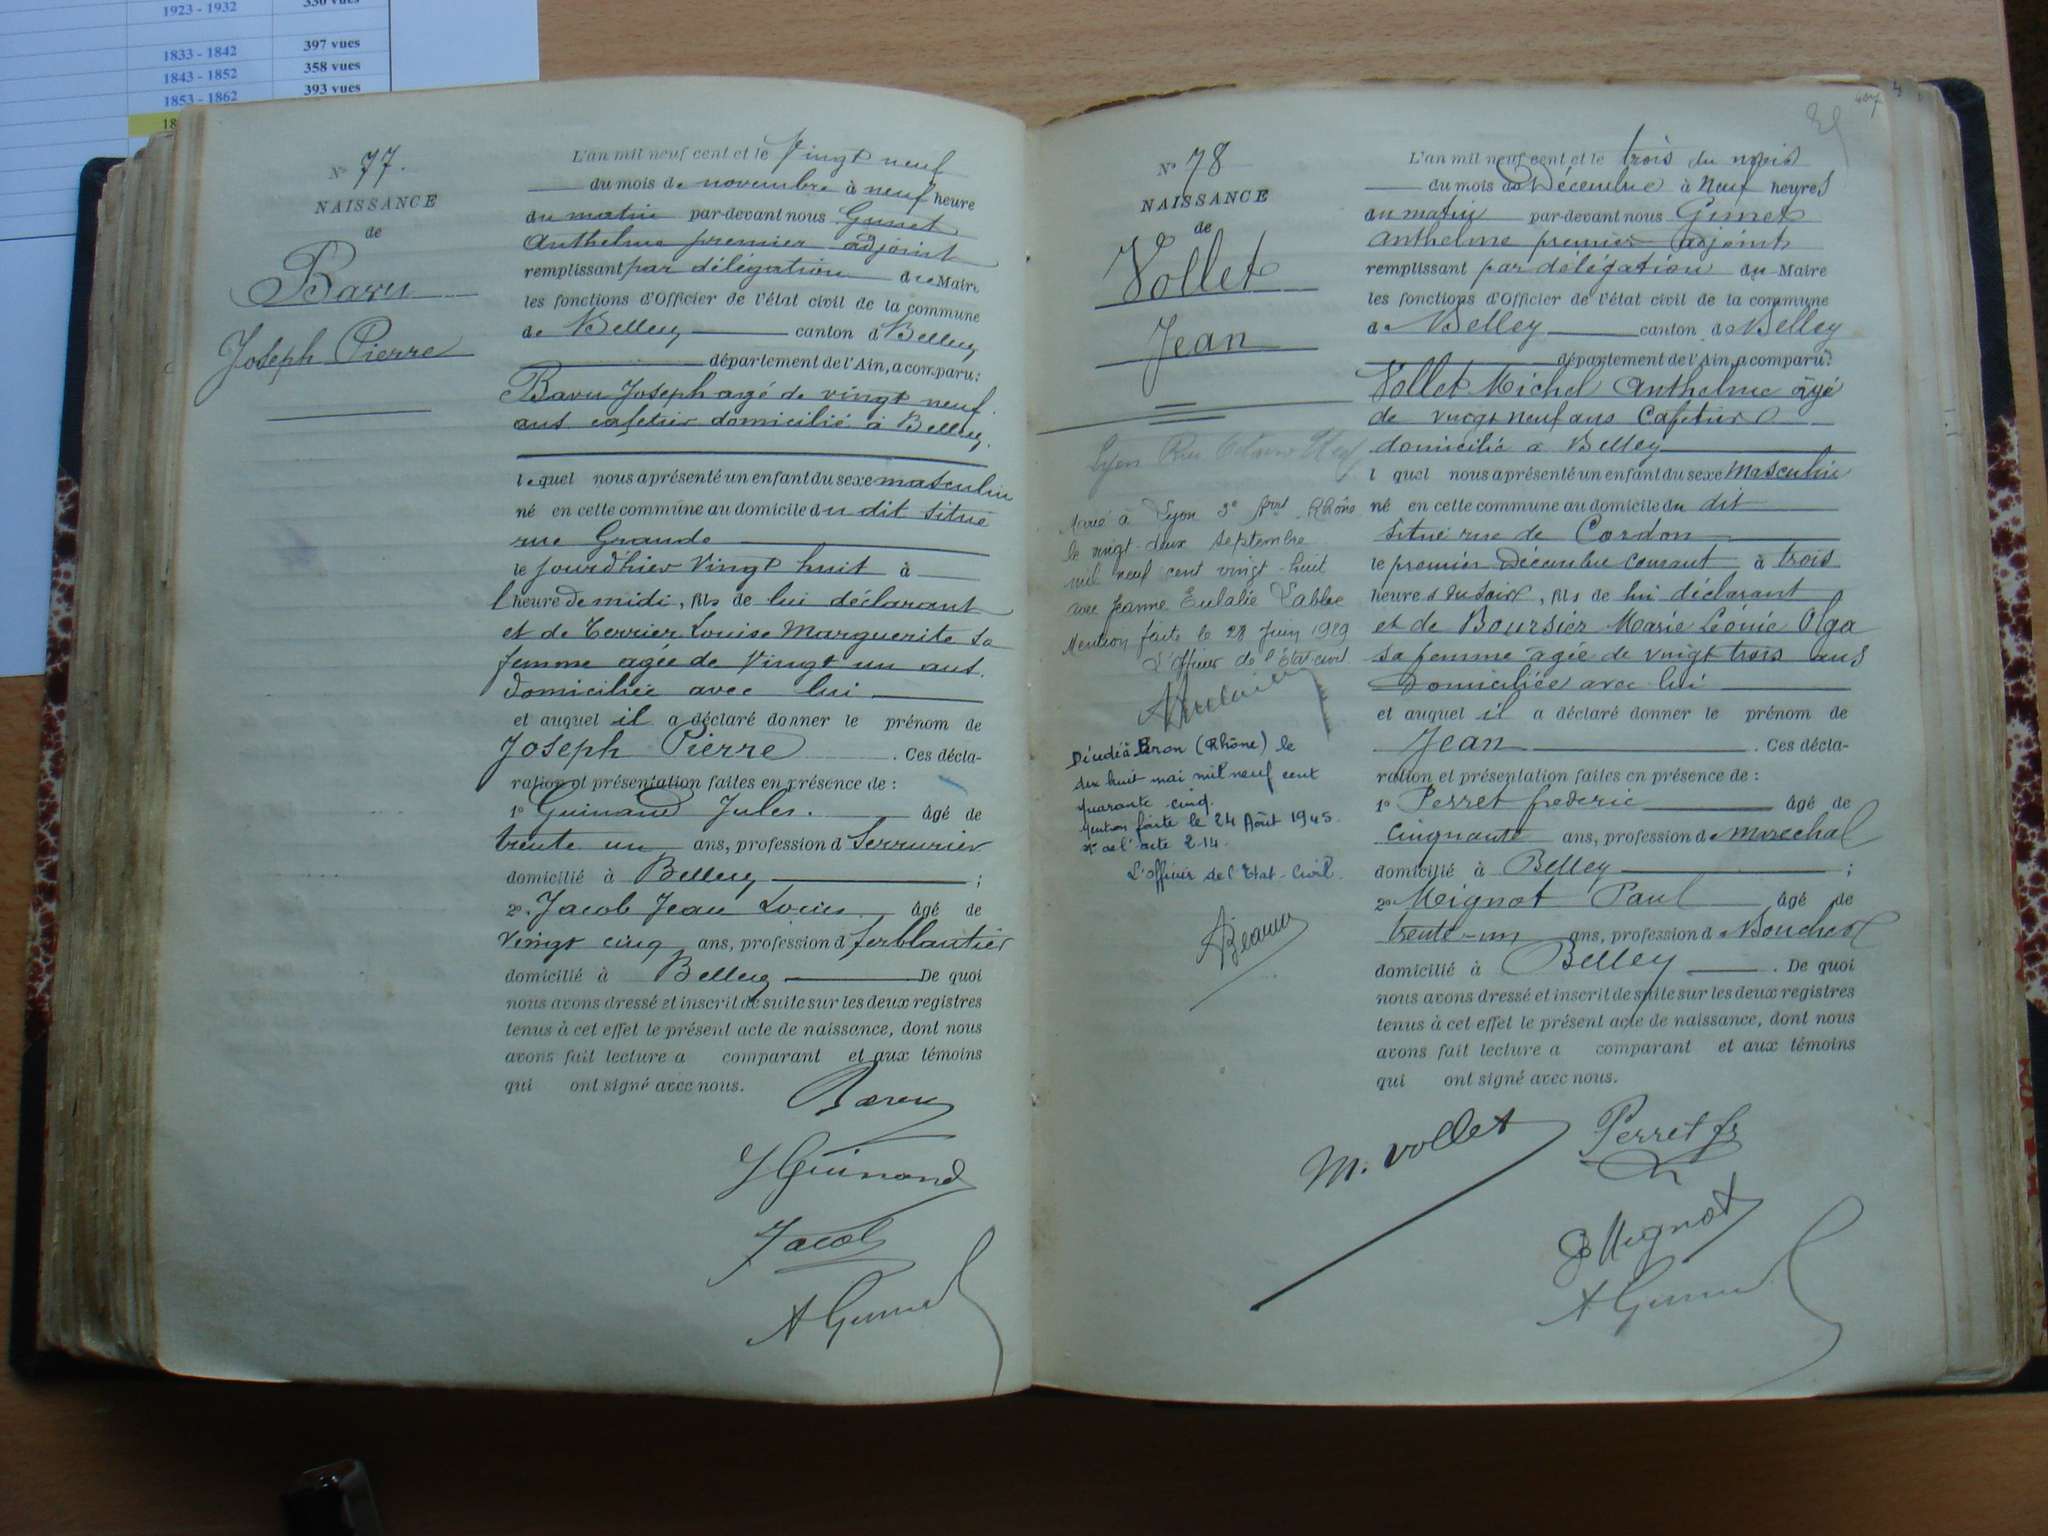 1923 - 1932 330 vues
1833 - 1842 397 vues
1843 - 1852 358 vues
1853 - 1862 393 vues
18
N° 77.
NAISSANCE
de
Bavu
Joseph Pierre
L'an mil neuf cent et le Vingt neuf
du mois de novembre à neuf heure
du matin par-devant nous Gimet
Anthelme premier adjoint
remplissant par délégation du Maire
les fonctions d'Officier de l'état civil de la commune
de Belley canton d Belley
département de l'Ain, a comparu:
Bavu Joseph agé de vingt neuf
ans cafetier domicilié à Belley.
lequel nous a présenté un enfant du sexe masculin
né en cette commune au domicile du dit situé
rue Grande
le jourd'hier Vingt huit à
l'heure de midi, fils de lui déclarant
et de Terrier Louise Marguerite sa
femme agée de Vingt un ans.
domiciliée avec lui
et auquel il a déclaré donner le prénom de
Joseph Pierre. Ces décla-
ration et présentation faites en présence de :
1° Guinand Jules. âgé de
trente un ans, profession d Serrurier
domicilié à Belley ;
2° Jacob Jean Louis âgé de
vingt cinq ans, profession d ferblantier
domicilié à Belley De quoi
nous avons dressé et inscrit de suite sur les deux registres
tenus à cet effet le présent acte de naissance, dont nous
avons fait lecture a comparant et aux témoins
qui ont signé avec nous.
Bavu
J Guinand
Jacob
A Gimet
N° 78
NAISSANCE
de
Vollet
Jean
Lyon Rue
Marié à Lyon 3e Arrt Rhône
le vingt-deux septembre
mil neuf cent vingt-huit
avec Jeanne Eulalie
Mention faite le 28 Juin 1929
L'Officier de l'Etat-civil
Décédé à Bron (Rhône) le
dix huit mai mil neuf cent
quarante-cinq.
Mention faite le 24 Août 1945.
N° de l'acte 214.
L'officier de l'Etat-Civil.
L'an mil neuf cent et le trois du mois
du mois de Décembre à Neuf heures
du matin par-devant nous Gimet
Anthelme premier adjoint
remplissant par délégation du Maire
les fonctions d'Officier de l'état civil de la commune
de Belley canton de Belley
département de l'Ain, a comparu:
Vollet Michel Anthelme âgé
de vingt neuf ans Cafetier
domicilié à Belley
l quel nous a présenté un enfant du sexe Masculin
né en cette commune au domicile du dit
situé rue de Cordon
le premier Décembre courant à trois
heures du soir, fils de lui déclarant
et de Boursier Marie Léonie Olga
sa femme agée de vingt trois ans
Domiciliée avec lui
et auquel il a déclaré donner le prénom de
Jean. Ces décla-
ration et présentation faites en présence de :
1° Perret frederic âgé de
cinquante ans, profession de marechal
domicilié à Belley ;
2° Meignot Paul âgé de
trente-un ans, profession d Boucher
domicilié à Belley. De quoi
nous avons dressé et inscrit de suite sur les deux registres
tenus à cet effet le présent acte de naissance, dont nous
avons fait lecture a comparant et aux témoins
qui ont signé avec nous.
M. Vollet Perret fr
Mignot
A Gimet